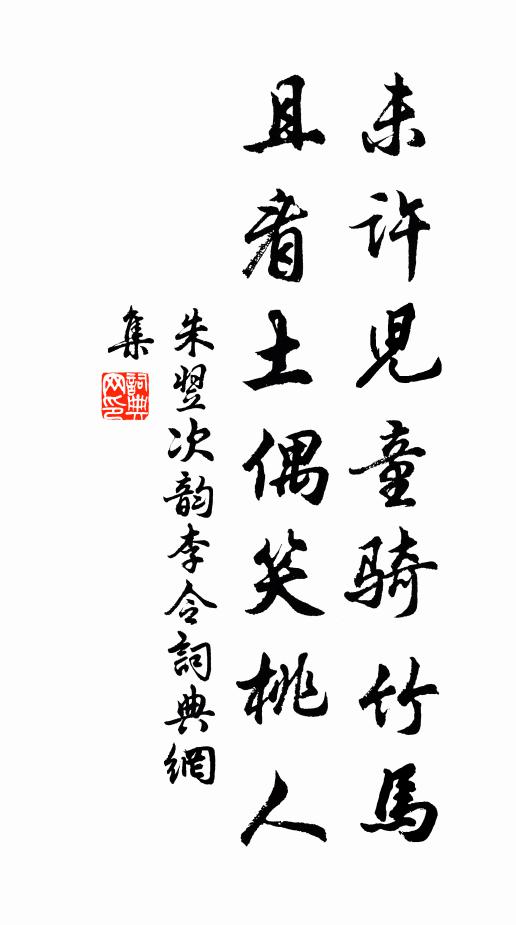 未许児童骑竹馬
且看土偶笑桃人
朱翌次韵李令詞典網
集
詞典
网印